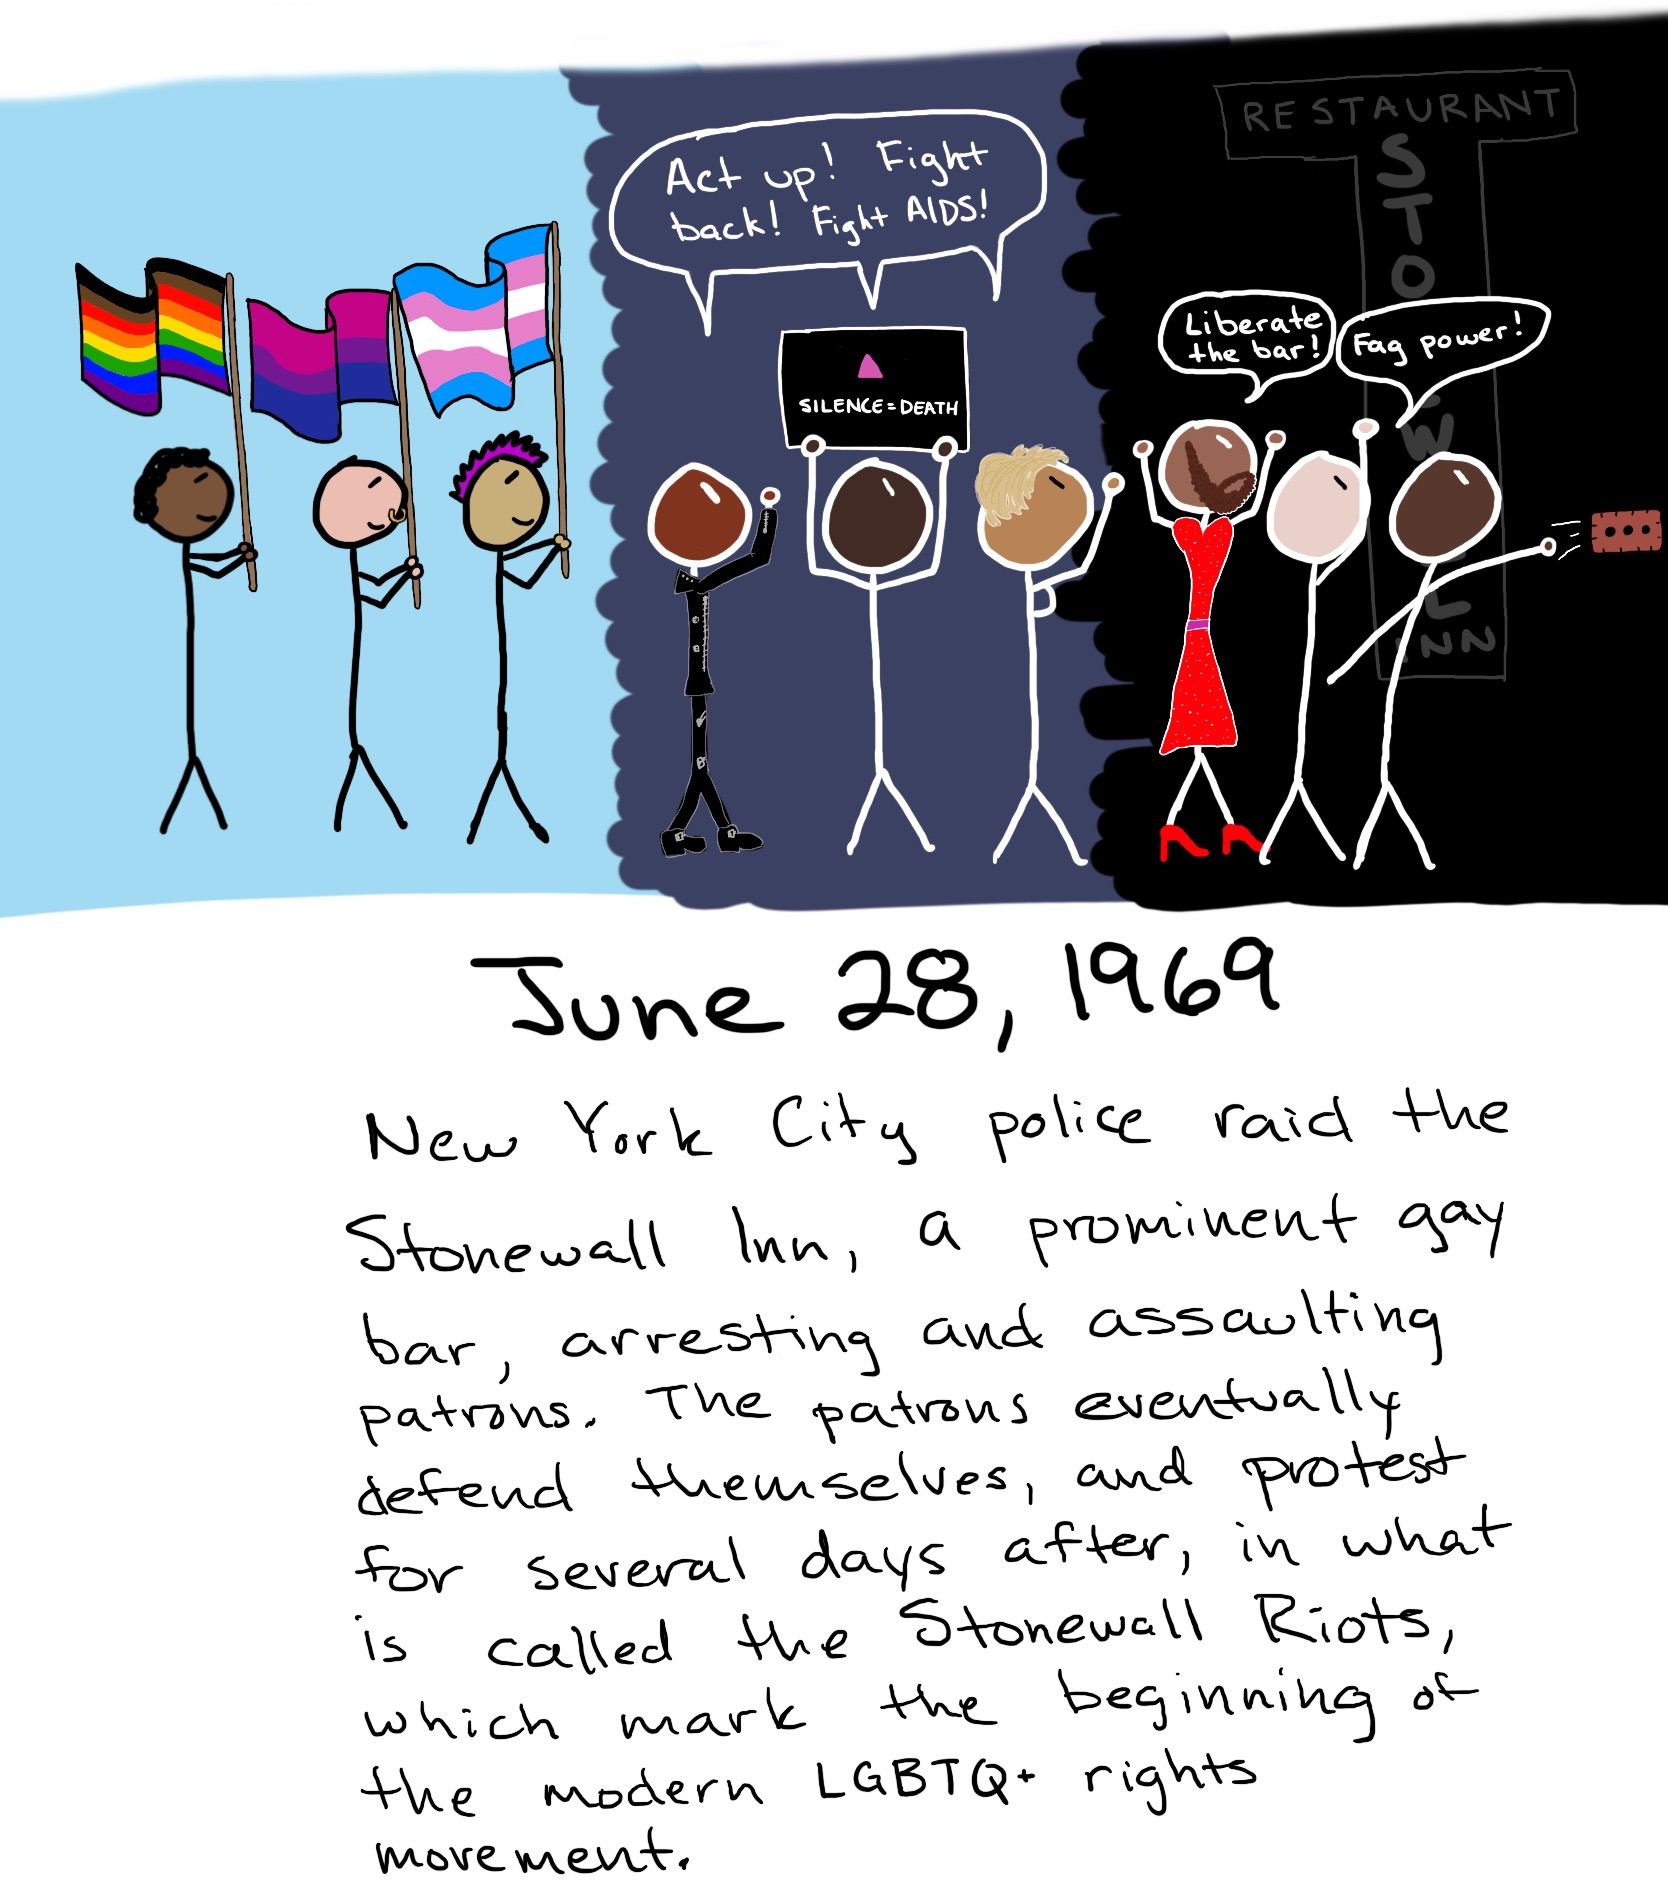 Act up! Fight
back! Fight AIDS!
SILENCE=DEATH
RESTAURANT
STO
WL
INN
Liberate
the bar!
Fag power!
June 28, 1969
New York City police raid the
Stonewall Inn, a prominent gay
bar, arresting and assaulting
patrons. The patrons eventually
defend themselves, and protest
for several days after, in what
is called the Stonewall Riots,
which mark the beginning of
the modern LGBTQ+ rights
movement.